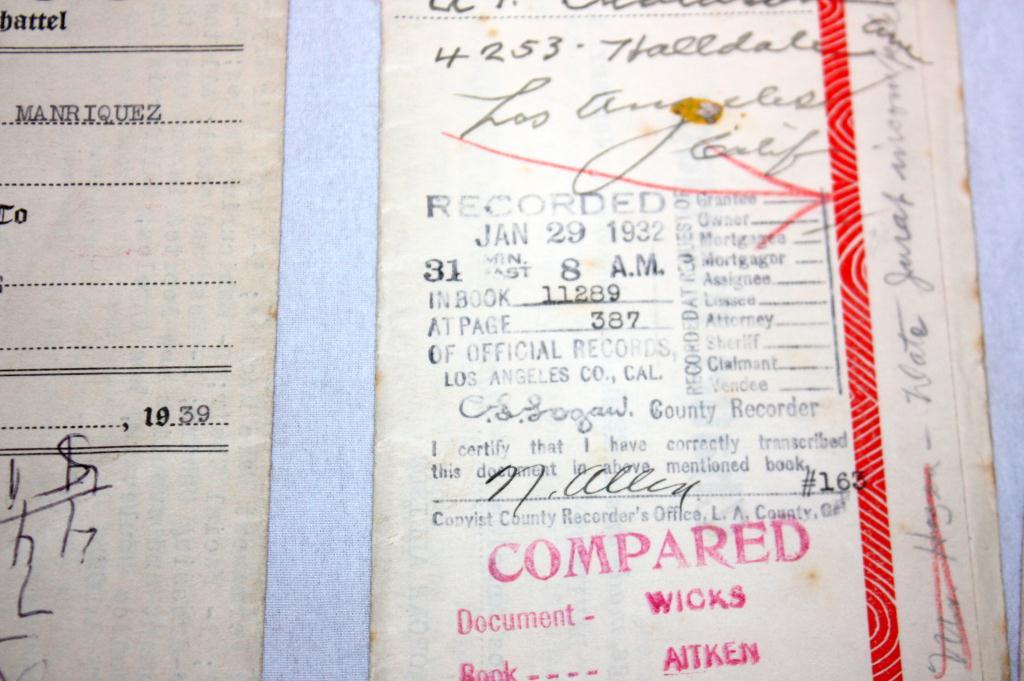 hattel
MANRIQUEZ
To
, 1939
4253 Halldale Ave
Los Angeles
Calif
RECORDED
JAN 29 1932
31 MIN. PAST 8 A.M.
IN BOOK 11289
AT PAGE 387
OF OFFICIAL RECORDS,
LOS ANGELES CO., CAL.
RECORDED AT REQUEST OF
Grantee
Owner
Mortgagee
Mortgagor
Assignee
Lessee
Attorney
Sheriff
Claimant
Vendee
C.L. Logan. County Recorder
I certify that I have correctly transcribed
this document in above mentioned book
N. Allen #163
Copyist County Recorder's Office, L. A. County, Cal
COMPARED
Document - WICKS
Book - - - - AITKEN
Note Jurat